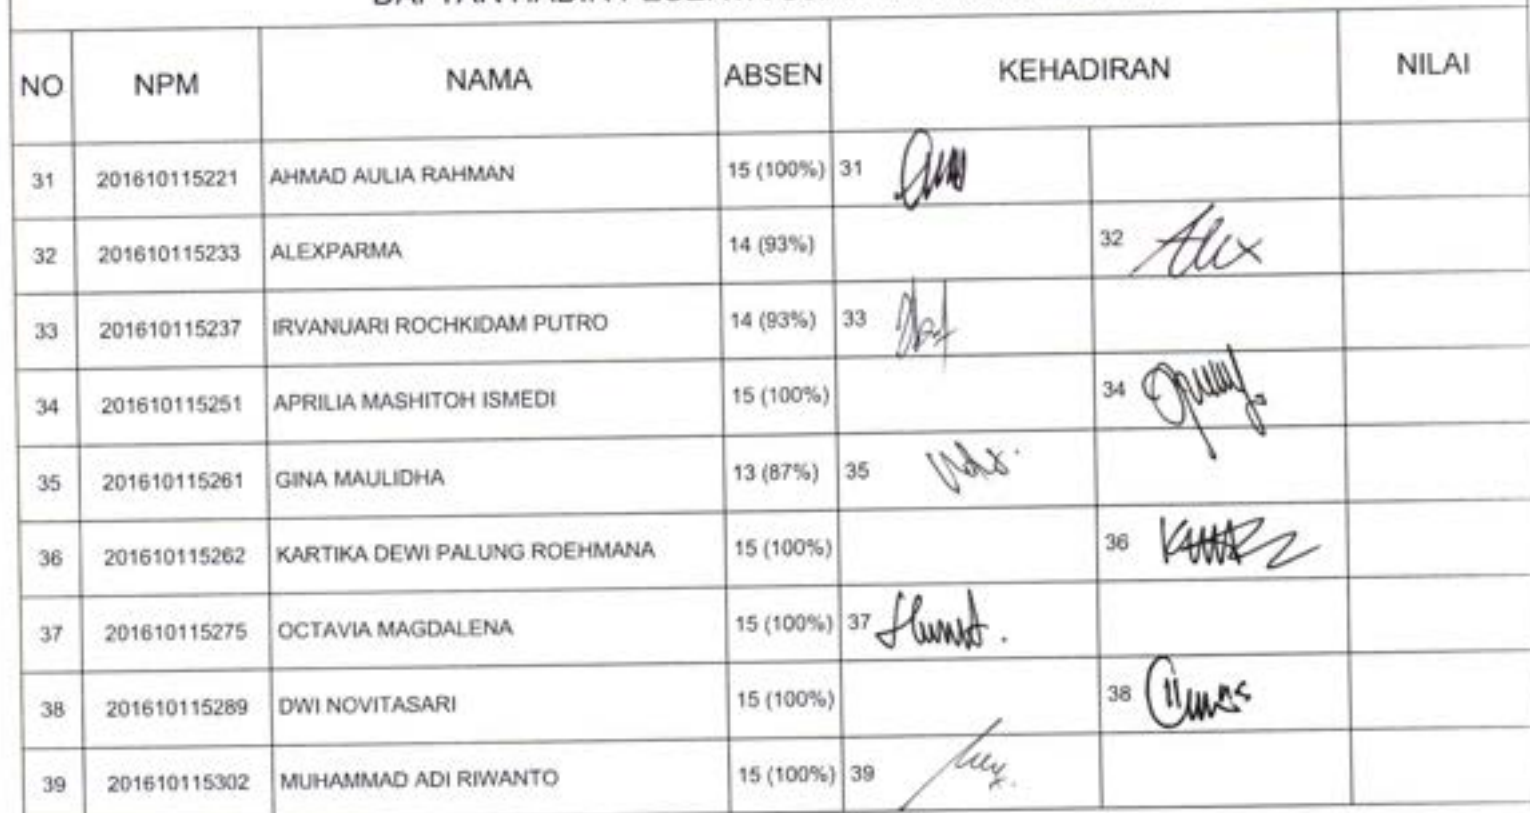 NO NPM NAMA ABSEN KEHADIRAN NILAI
31 201610115221 AHMAD AULIA RAHMAN 15 (100%) 31
32 201610115233 ALEXPARMA 14 (93%) 32 Alex
33 201610115237 IRVANUARI ROCHKIDAM PUTRO 14 (93%) 33
34 201610115251 APRILIA MASHITOH ISMEDI 15 (100%) 34
35 201610115261 GINA MAULIDHA 13 (87%) 35
36 201610115262 KARTIKA DEWI PALUNG ROEHMANA 15 (100%) 36
37 201610115275 OCTAVIA MAGDALENA 15 (100%) 37
38 201610115289 DWI NOVITASARI 15 (100%) 38
39 201610115302 MUHAMMAD ADI RIWANTO 15 (100%) 39